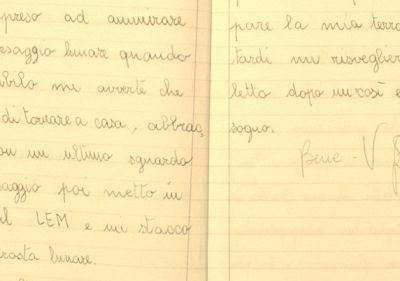 preso ad ammirare
esaggio lunare quando
bilo mi avverte che
di tornare a casa, abbrac
ou un ultimo sguardo
saggio poi metto in
al LEM e mi stacco
rosta lunare.
pare la mia terra
tardi mi risveglier
letto dopo un così e
sogno.
Bene - V